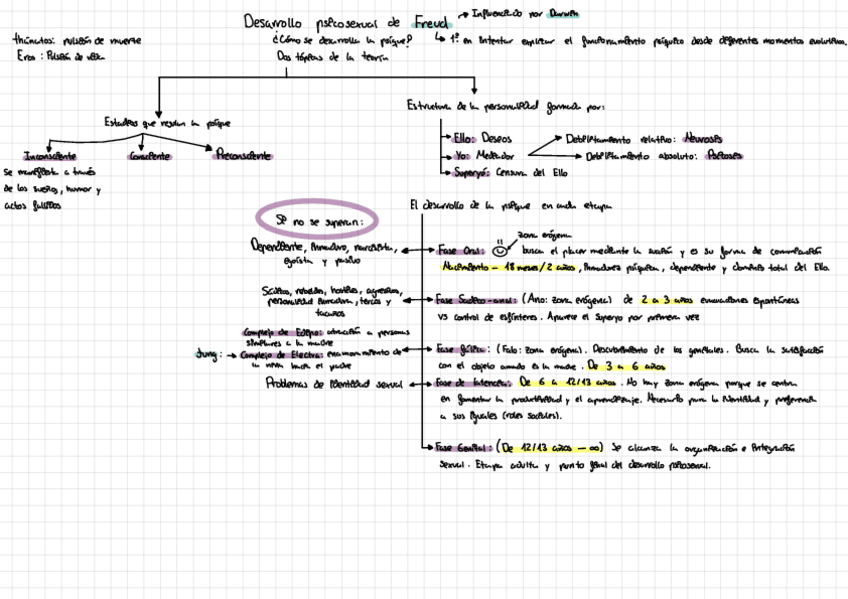 Desarrollo psicosexual de Freud → Influenciado por Darwin
Thánatos: pulsión de muerte
Eros: Pulsión de vida
¿Cómo se desarrolla la psique?
↳ 1º en intentar explicar el funcionamiento psíquico desde diferentes momentos evolutivos.
Dos tópicas de la teoría
Estadios que regulan la psique
Inconsciente
Consciente
Preconsciente
se manifiesta a través
de los sueños, humor y
actos fallidos
Estructura de la personalidad formada por:
Ello: Deseos
Yo: Mediador
Superyó: Censura del Ello
Debilitamiento relativo: Neurosis
Debilitamiento absoluto: Psicosis
El desarrollo de la psique en cada etapa
Si no se superan:
zona erógena
Fase Oral: busca el placer mediante la succión y es su forma de comunicación
Nacimiento - 18 meses/2 años, inmadurez psíquica, dependiente y dominio total del Ello.
Dependiente, inmaduro, narcisista,
egoísta y pasivo
Fase Sádico-anal: (Ano: zona erógena) de 2 a 3 años evacuaciones espontáneas
vs control de esfínteres. Aparece el superyo por primera vez
Sádicos, rebeldes, hostiles, agresivos,
personalidad inmadura, tercos y
tacaños
Fase fálica: (Falo: zona erógena). Descubrimiento de los genitales. Busca la satisfacción
con el objeto amado es la madre. De 3 a 6 años
Complejo de Edipo: atracción a personas
similares a la madre
Jung: → Complejo de Electra: enamoramiento de
la niña hacia el padre
Fase de latencia: De 6 a 12/13 años. No hay zona erógena porque se centra
en fomentar la productividad y el aprendizaje. Necesario para la identidad y preferencia
a sus iguales (roles sociales).
Problemas de identidad sexual
Fase Genital: (De 12/13 años - ∞) Se alcanza la organización e integración
sexual. Etapa adulta y punto final del desarrollo psicosexual.